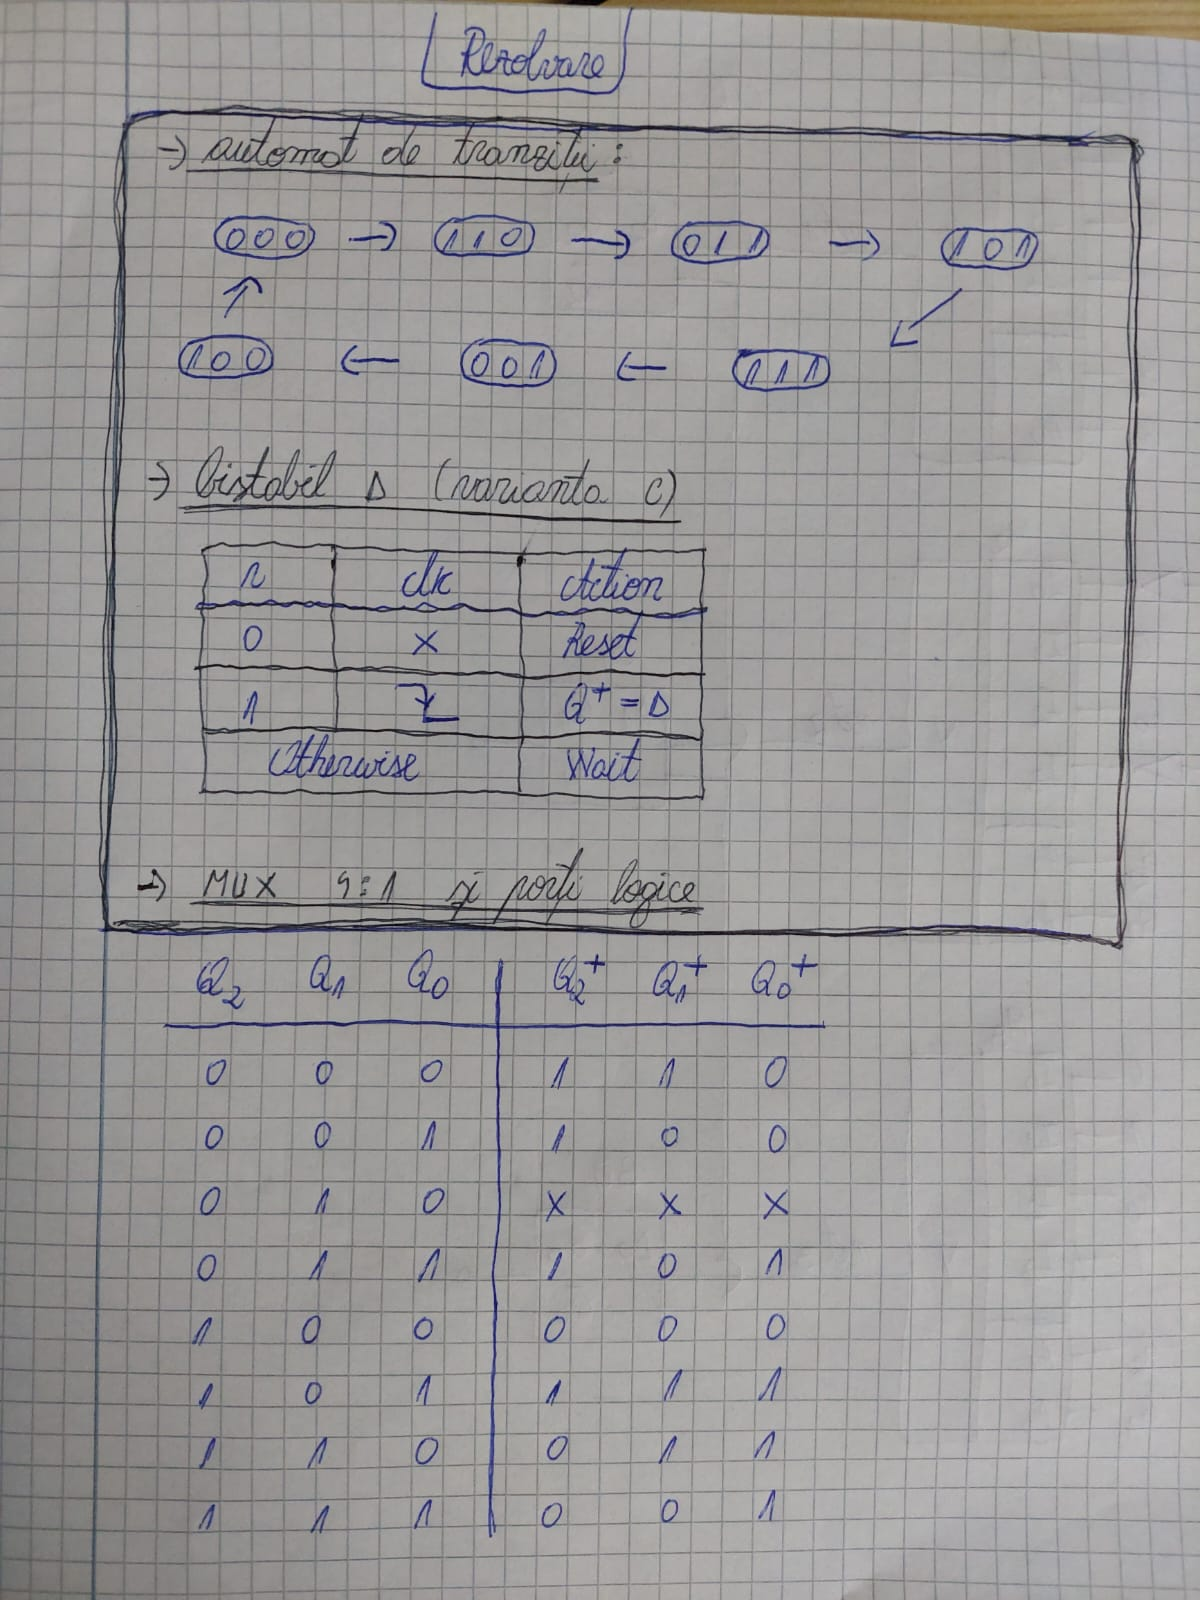 Rezolvare
→ automat de tranziții:
000 → 110 → 011 → 101
↑ ↙
100 ← 001 ← 111
→ Bistabil D (varianta C)
r clk Action
0 x Reset
1 ↓ Q+ = D
Otherwise Wait
→ MUX 4:1 și porți logice
Q2 Q1 Q0 Q2+ Q1+ Q0+
0 0 0 1 1 0
0 0 1 1 0 0
0 1 0 x x x
0 1 1 1 0 1
1 0 0 0 0 0
1 0 1 1 1 1
1 1 0 0 1 1
1 1 1 0 0 1